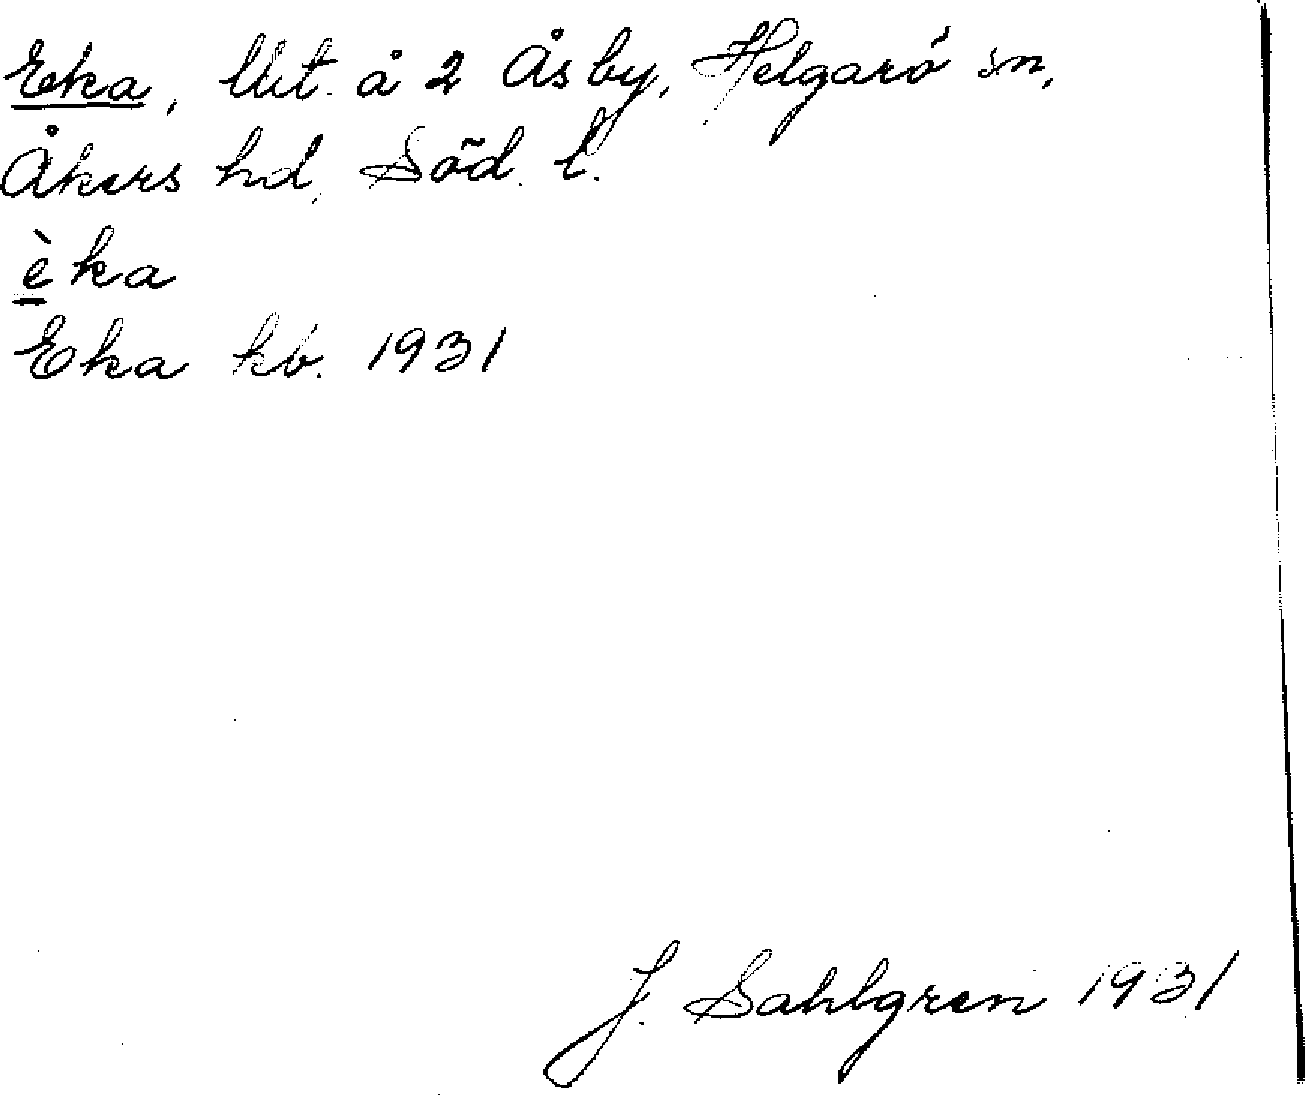 Eka, Utt. å 2 Åsby, Helgarö sn,
Åkers hd, Söd. l.
èka
Eka kb. 1931
J. Sahlgren 1931